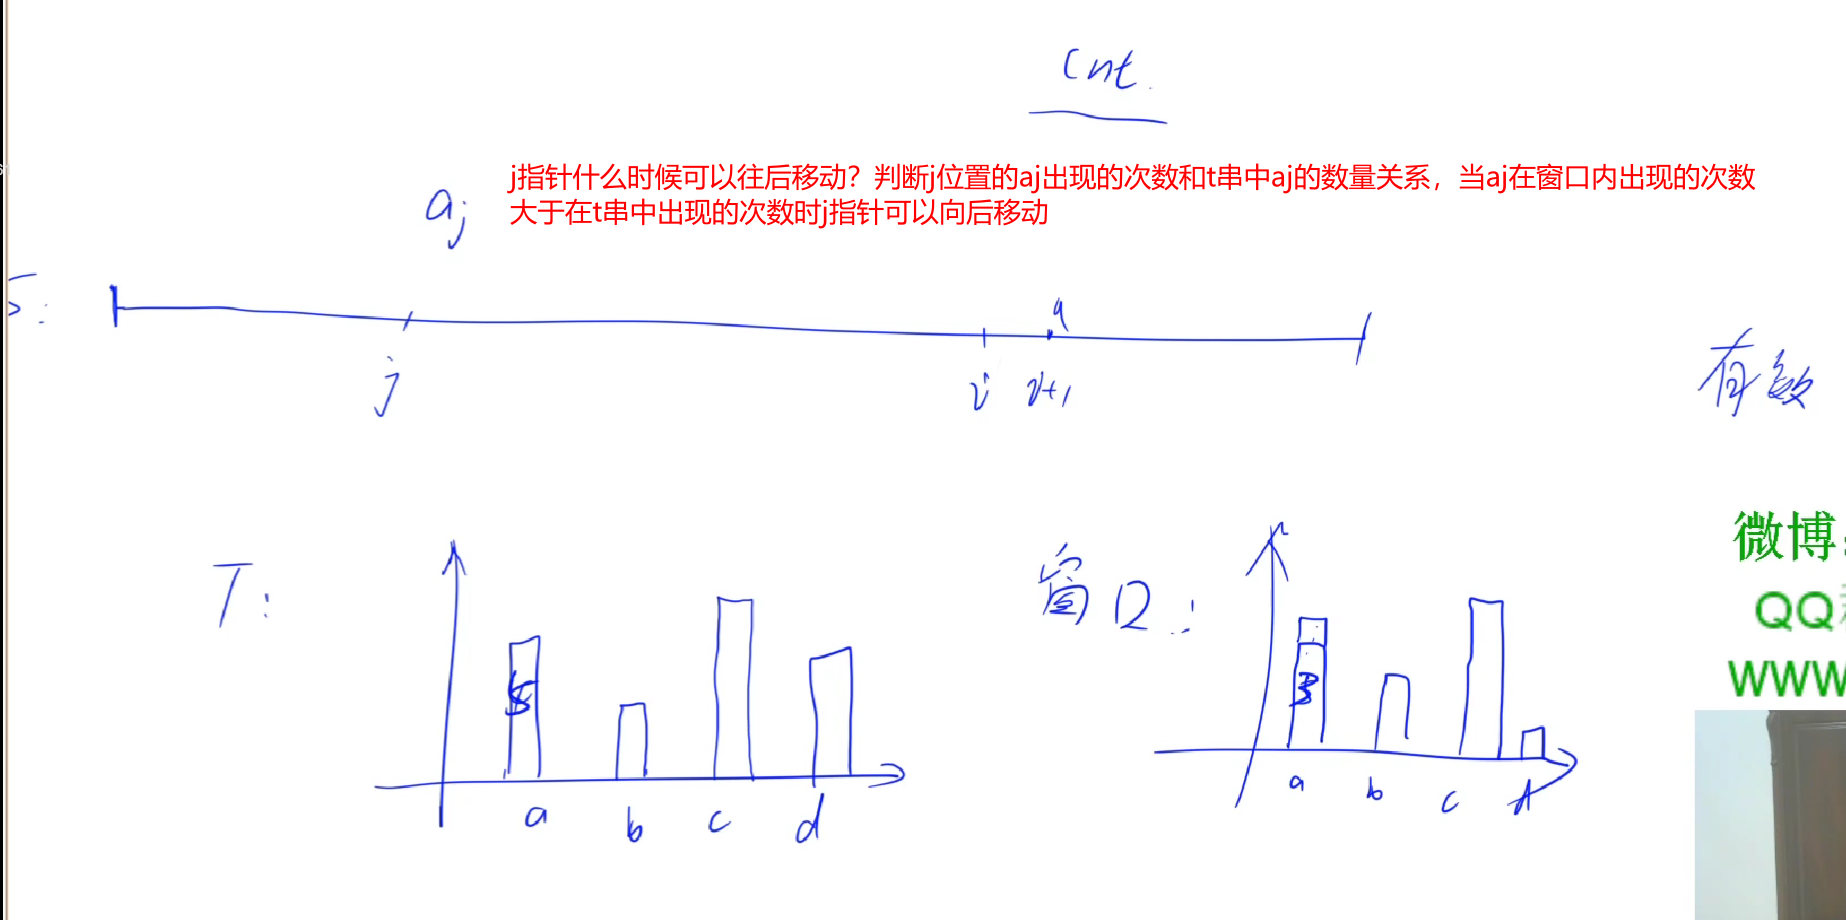 Cnt.
j指针什么时候可以往后移动？判断j位置的aj出现的次数和t串中aj的数量关系，当aj在窗口内出现的次数
大于在t串中出现的次数时j指针可以向后移动
aj
S:
a
j
i i+1
有效
T:
窗口:
微博:
QQ
5
3
www
a b c d
a b c d